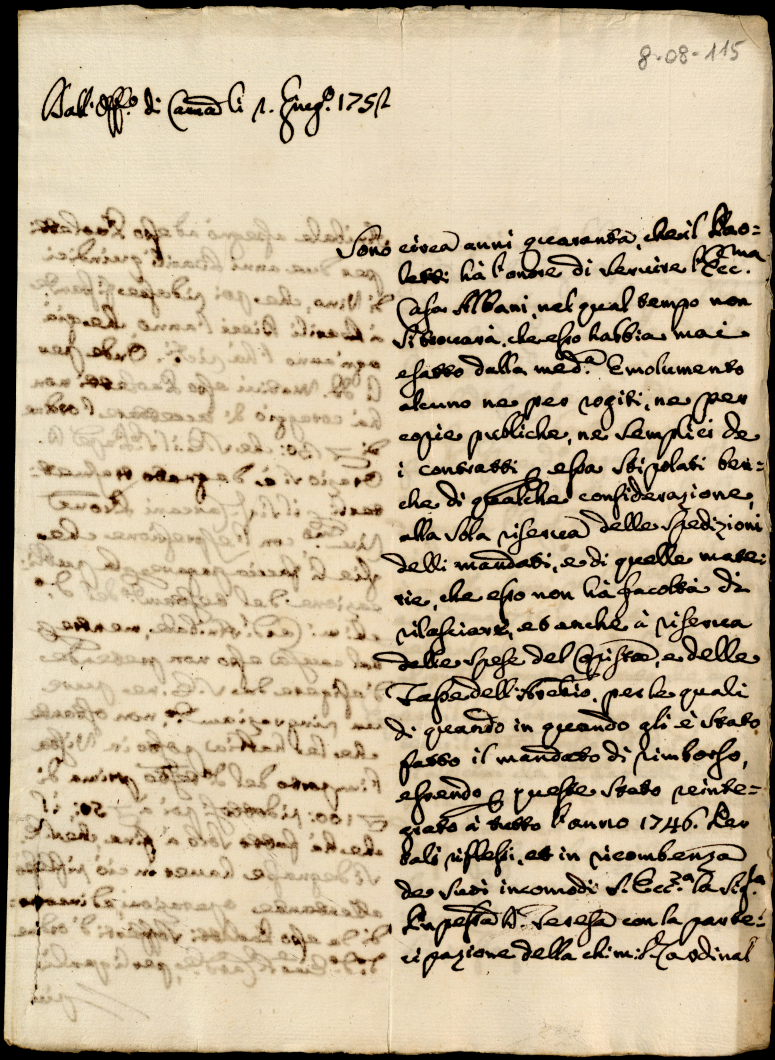 8-08-115
Dall' Off.o di Camã li 2. Giug.o 1752
Sono circa anni quaranta, che il Pao=
letti hà l'onore di servire l'Ecc.ma
Casa Albani, nel qual tempo non
si trovarà, che esso habbia mai
esatto dalla med.a Emolumento
alcuno ne per rogiti, ne per
copie publiche, ne semplici de
i contratti p essa stipolati ben=
che di qualche considerazione,
alla sola riserva delle spedizioni
delli mandati, e di quelle mate=
rie, che esso non hà facoltà di
rilasciare, et anche à riserva
delle spese del Copista, e delle
Tasse dell'Archio, per le quali
di quando in quando gli è stato
fatto il mandato di rimborso,
essendo p queste stato reinte=
grato à tutto l'anno 1746. Per
tali riflessi, et in ricombenza
de suoi incomodi S. Ecc.za la Sig.ra
Pnpessa D. Teresa con la parte=
cipazione della chi: m: Cardinal